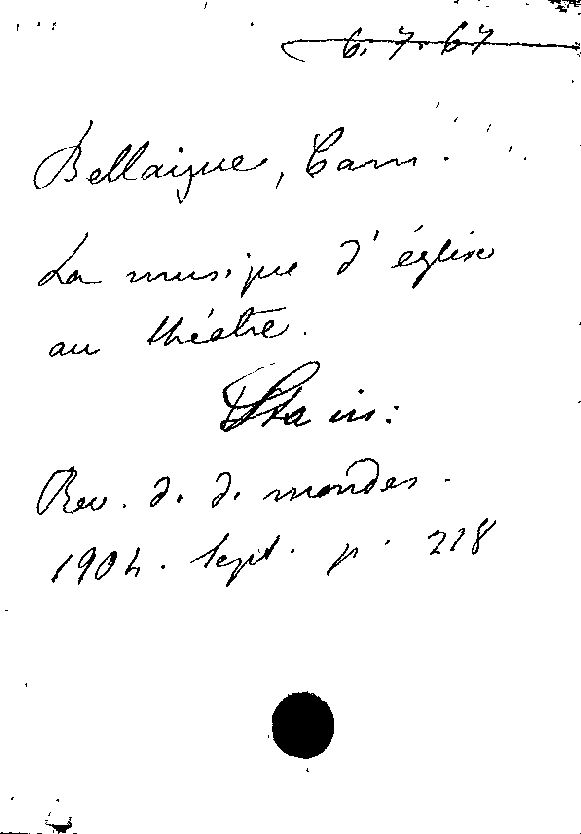 6. 7. 67
Bellaigue, Cam.
La musique d'église
au théatre.
Sta in:
Rev. d. d. mondes.
1904. Sept. p. 218